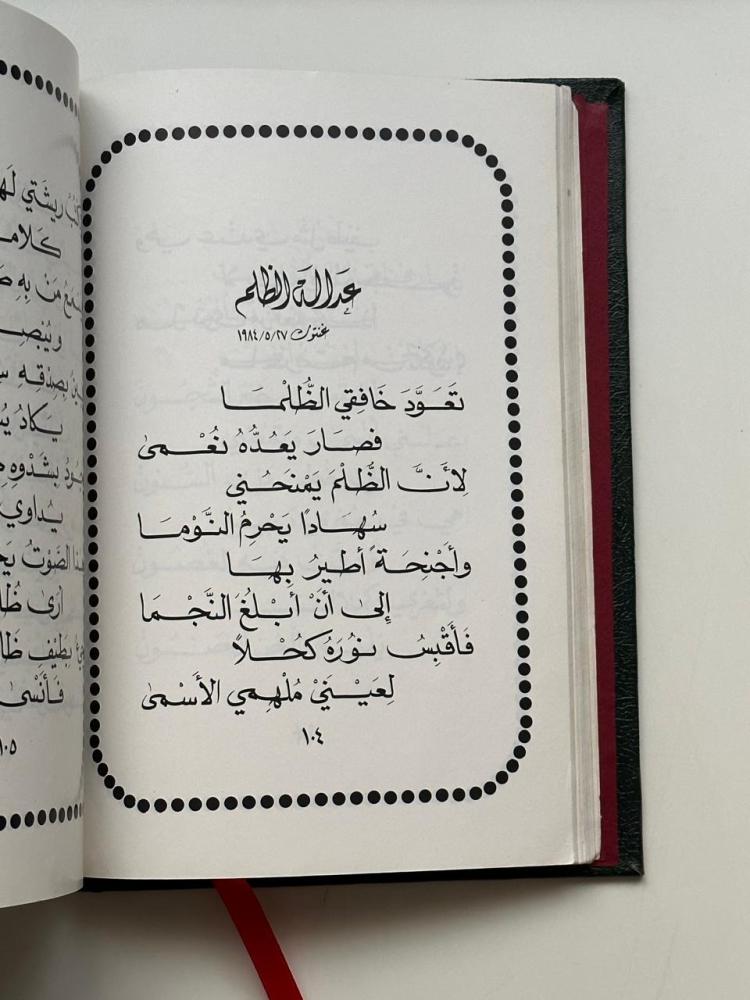 عدالة الظلم
غنتوت ١٩٨٤/٥/٢٧
تَعَوَّدَ خَافِقِي الظُّلْمَا
فَصَارَ يَعُدُّهُ نُعْمَى
لِأَنَّ الظُّلْمَ يَمْنَحُنِي
سُهَادًا يَحْرِمُ النَّوْمَا
وأَجْنِحَةً أَطيرُ بِهَا
إِلى أَنْ أَبْلُغَ النَّجْمَا
فَأَقْبِسُ نورَهُ كُحْلاً
لِعَيْنَيْ مُلْهِمِي الأَسْمَى
١٠٤
ريشَتي
مَنْ بِهِ
بِصِدْقِهِ
يَكادُ
بِشَدْوِهِ
يُداوي
الصَّوْتُ
أَرى
بِطَيْفِ
فَأَنْسى
١٠٥